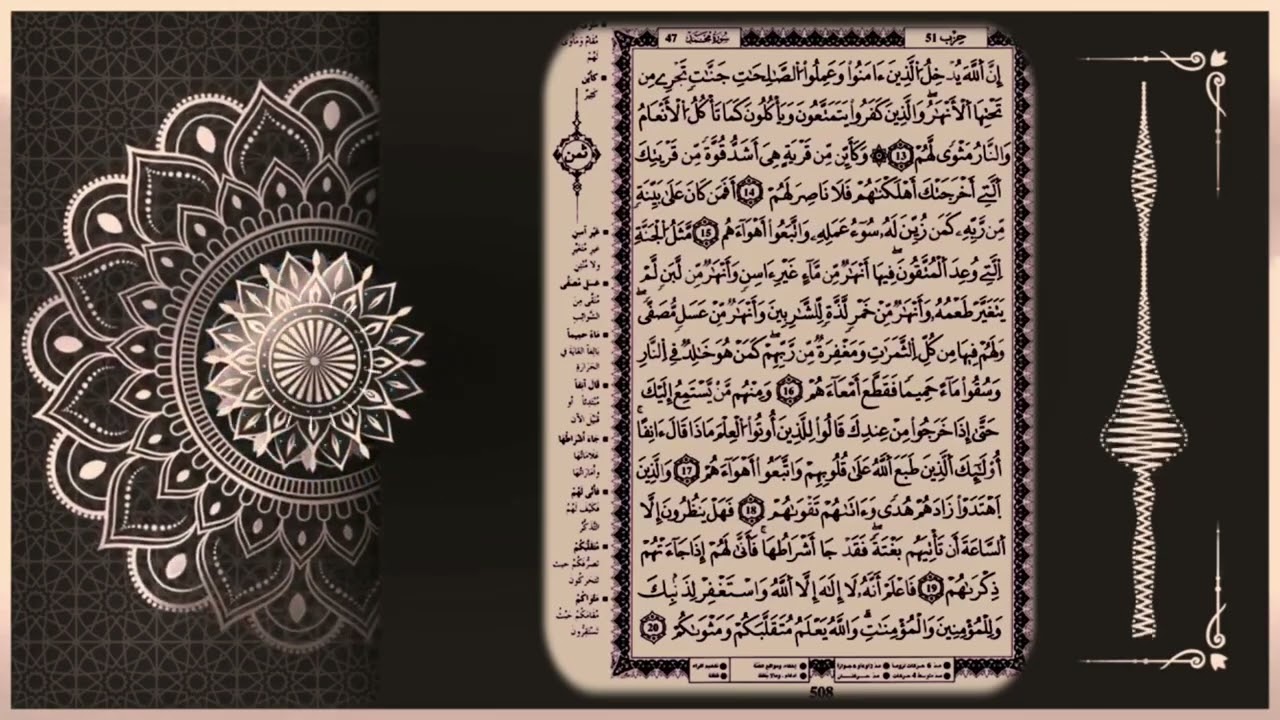 47 سورة محمد
حزب 51
إِنَّ اَ۬للَّهَ يُدْخِلُ اُ۬لذِينَ ءَامَنُواْ وَعَمِلُواْ اُ۬لصَّٰلِحَٰتِ جَنَّٰتٖ تَجْرِے مِن
تَحْتِهَا اَ۬لَانْهَٰرُۖ وَالذِينَ كَفَرُواْ يَتَمَتَّعُونَ وَيَاكُلُونَ كَمَا تَاكُلُ اُ۬لَانْعَٰمُ
وَالنَّارُ مَثْوٗي لَّهُمْ 13 ۞ وَكَأَيِّن مِّن قَرْيَةٍ هِيَ أَشَدُّ قُوَّةٗ مِّن قَرْيَتِكَ
اَ۬لتِے أَخْرَجَتْكَ أَهْلَكْنَٰهُمْ فَلَا نَاصِرَ لَهُمْ 14 أَفَمَن كَانَ عَلَىٰ بَيِّنَةٖ
مِّن رَّبِّهِۦ كَمَن زُيِّنَ لَهُۥ سُوٓءُ عَمَلِهِۦ وَاتَّبَعُواْ أَهْوَآءَهُم 15 مَّثَلُ اُ۬لْجَنَّةِ
اِ۬لتِے وُعِدَ اَ۬لْمُتَّقُونَۖ فِيهَآ أَنْهَٰرٞ مِّن مَّآءٍ غَيْرِ ءَاسِنٖ وَأَنْهَٰرٞ مِّن لَّبَنٖ لَّمْ
يَتَغَيَّرْ طَعْمُهُۥ وَأَنْهَٰرٞ مِّنْ خَمْرٖ لَّذَّةٖ لِّلشَّٰرِبِينَ وَأَنْهَٰرٞ مِّنْ عَسَلٖ مُّصَفّٗيۖ
وَلَهُمْ فِيهَا مِن كُلِّ اِ۬لثَّمَرَٰتِ وَمَغْفِرَةٞ مِّن رَّبِّهِمْۖ كَمَنْ هُوَ خَٰلِدٞ فِے اِ۬لنَّارِ
وَسُقُواْ مَآءً حَمِيماٗ فَقَطَّعَ أَمْعَآءَهُمْ 16 وَمِنْهُم مَّنْ يَّسْتَمِعُ إِلَيْكَ
حَتَّىٰٓ إِذَا خَرَجُواْ مِنْ عِندِكَ قَالُواْ لِلذِينَ أُوتُواْ اُ۬لْعِلْمَ مَاذَا قَالَ ءَانِفاًۚ
أُوْلَٰٓئِكَ اَ۬لذِينَ طَبَعَ اَ۬للَّهُ عَلَىٰ قُلُوبِهِمْ وَاتَّبَعُواْ أَهْوَآءَهُمْ 17 وَالذِينَ
اَ۪هْتَدَوْاْ زَادَهُمْ هُديٗ وَءَات۪يٰهُمْ تَقْو۪يٰهُمْ 18 فَهَلْ يَنظُرُونَ إِلَّا
اَ۬لسَّاعَةَ أَن تَاتِيَهُم بَغْتَةٗۖ فَقَدْ جَا أَشْرَاطُهَاۚ فَأَنّ۪يٰ لَهُمْ إِذَا جَآءَتْهُمْ
ذِكْر۪يٰهُمْ 19 فَاعْلَمَ اَنَّهُۥ لَآ إِلَٰهَ إِلَّا اَ۬للَّهُ وَاسْتَغْفِرْ لِذَنۢبِكَ
وَلِلْمُومِنِينَ وَالْمُومِنَٰتِۖ وَاللَّهُ يَعْلَمُ مُتَقَلَّبَكُمْ وَمَثْو۪يٰكُمْ 20
مقام ومأوى
لهم
كأين
كثير
ثمن
غير آسن
غير متغير
ولا منتن
عسل مصفى
منقى من
الشوائب
ماء حميما
بالغا الغاية في
الحرارة
قال آنفا
مبتدئا أو
قبيل الآن
جاء أشراطها
علاماتها
وأماراتها
فأنى لهم
فكيف لهم
التذكر
متقلبكم
تصرفكم حيث
تتحركون
مثواكم
مقامكم حيث
تستقرون
508